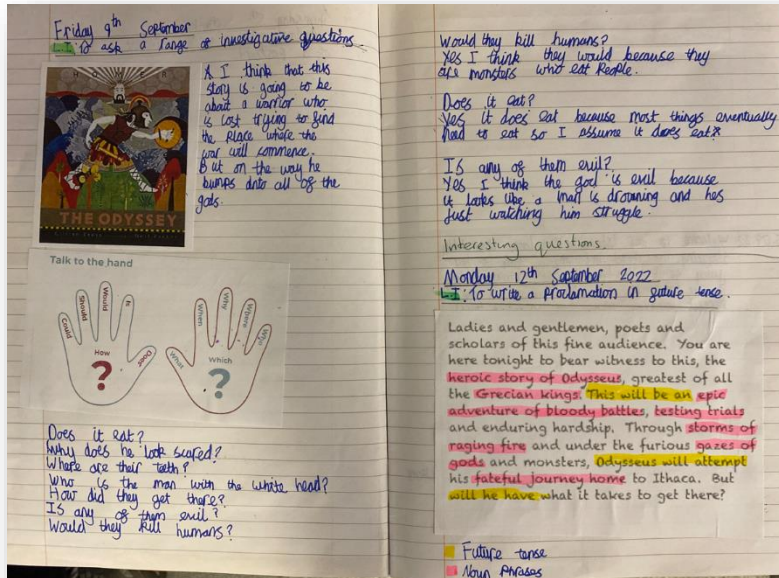 Friday 9th September
L.I: To ask a range of investigative questions
HOMER
THE ODYSSEY
* I think that this
story is going to be
about a warrior who
is lost trying to find
the place where the
war will commence.
But on the way he
bumps into all of the
gods.
Talk to the hand
Could
Should
Would
Is
Does
How
?
What
When
Why
Where
Who
Which
?
Does it eat?
Why does he look scared?
Where are their teeth?
Who is the man with the white head?
How did they get there?
Is any of them evil?
Would they kill humans?
Would they kill humans?
Yes I think they would because they
are monsters who eat people.
Does it eat?
Yes it does eat because most things eventually
need to eat so I assume it does eat*
Is any of them evil?
Yes I think the god is evil because
it looks like a man is drowning and hes
just watching him struggle.
Interesting questions.
Monday 12th September 2022
L.I: To write a proclamation in future tense.
Ladies and gentlemen, poets and
scholars of this fine audience. You are
here tonight to bear witness to this, the
heroic story of Odysseus, greatest of all
the Grecian kings. This will be an epic
adventure of bloody battles, testing trials
and enduring hardship. Through storms of
raging fire and under the furious gazes of
gods and monsters, Odysseus will attempt
his fateful journey home to Ithaca. But
will he have what it takes to get there?
Future tense
Noun Phrases